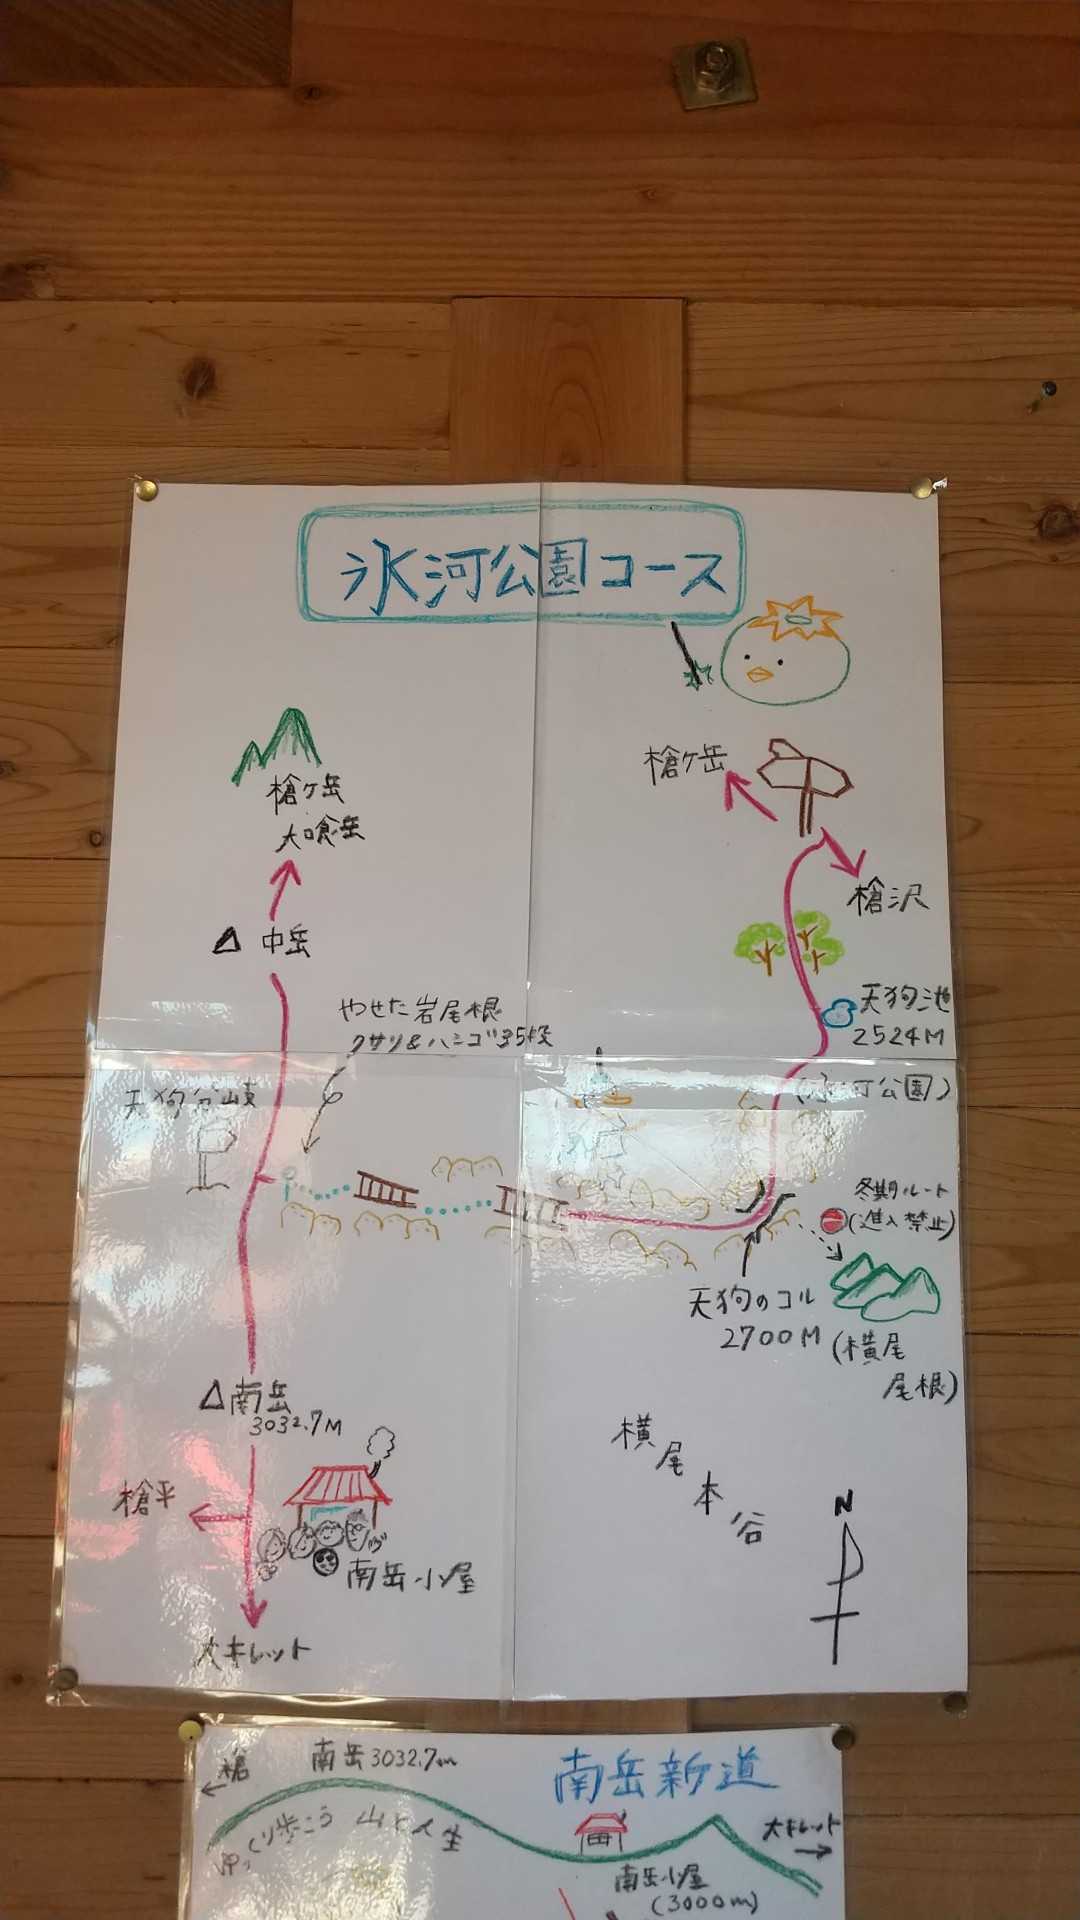 氷河公園コース
槍ヶ岳
槍ヶ岳
大喰岳
槍沢
中岳
やせた岩尾根
クサリ&ハシゴ35段
天狗池
2524M
(氷河公園)
天狗分岐
冬期ルート
(進入禁止)
天狗のコル
2700M
(横尾
尾根)
南岳
3032.7M
横尾本谷
槍平
南岳小屋
N
大キレット
槍
南岳3032.7m
南岳新道
ゆっくり歩こう 山と人生
大キレット
南岳小屋
(3000m)